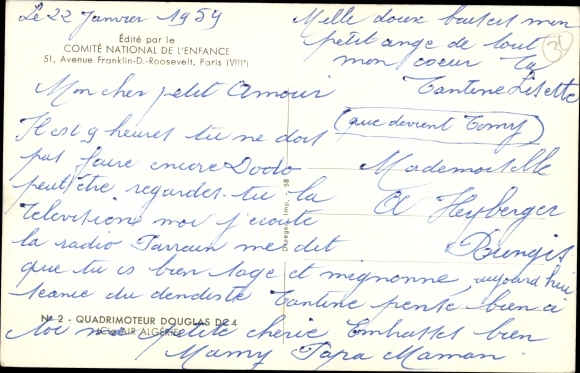 Le 22 Janvier 1959
Édité par le
COMITÉ NATIONAL DE L'ENFANCE
51, Avenue Franklin-D.-Roosevelt, Paris (VIIIe)
Mon cher petit Amour
Il est 9 heures tu ne dois
pas faire encore Dodo
peut être regardes-tu la
Television moi j'ecoute
la radio Parrain me dit
que tu es bien sage et mignonne, aujourd'hui
seance du dendiste Tantine pense bien a
toi ma petite cherie Embrasses bien
Mamy Papa Maman.
Mille doux baisers mon
petit ange de tout
mon coeur Ta
Tantine Lisette
(que devient Tomy)
Mademoiselle
A Heyberger
Rungis
Draeger Imp. 58
N° 2 - QUADRIMOTEUR DOUGLAS DC 4
AIR ALGÉRIE
30